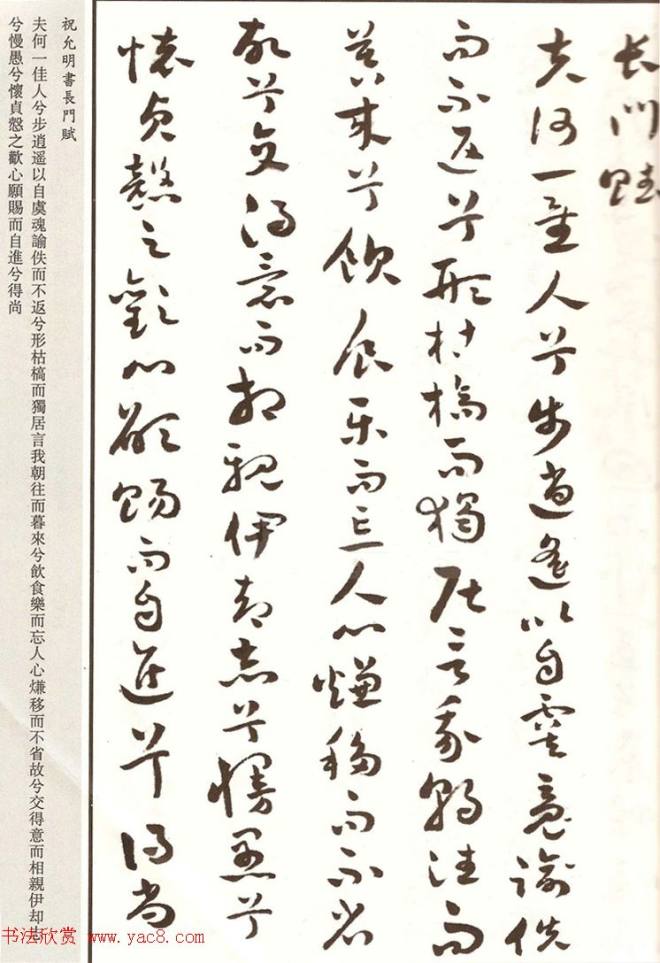 長門賦
夫何一佳人兮步逍遥以自虞魂諭佚
而不返兮形枯槁而獨居言我朝往而
暮來兮飲食樂而忘人心慊移而不省
故兮交得意而相親伊却志兮慢愚兮
懷貞愨之歡心願賜而自進兮得尚
祝允明書長門賦
夫何一佳人兮步逍遥以自虞魂諭佚而不返兮形枯槁而獨居言我朝往而暮來兮飲食樂而忘人心慊移而不省故兮交得意而相親伊却志
兮慢愚兮懷貞愨之歡心願賜而自進兮得尚
书法欣赏 www.yac8.com